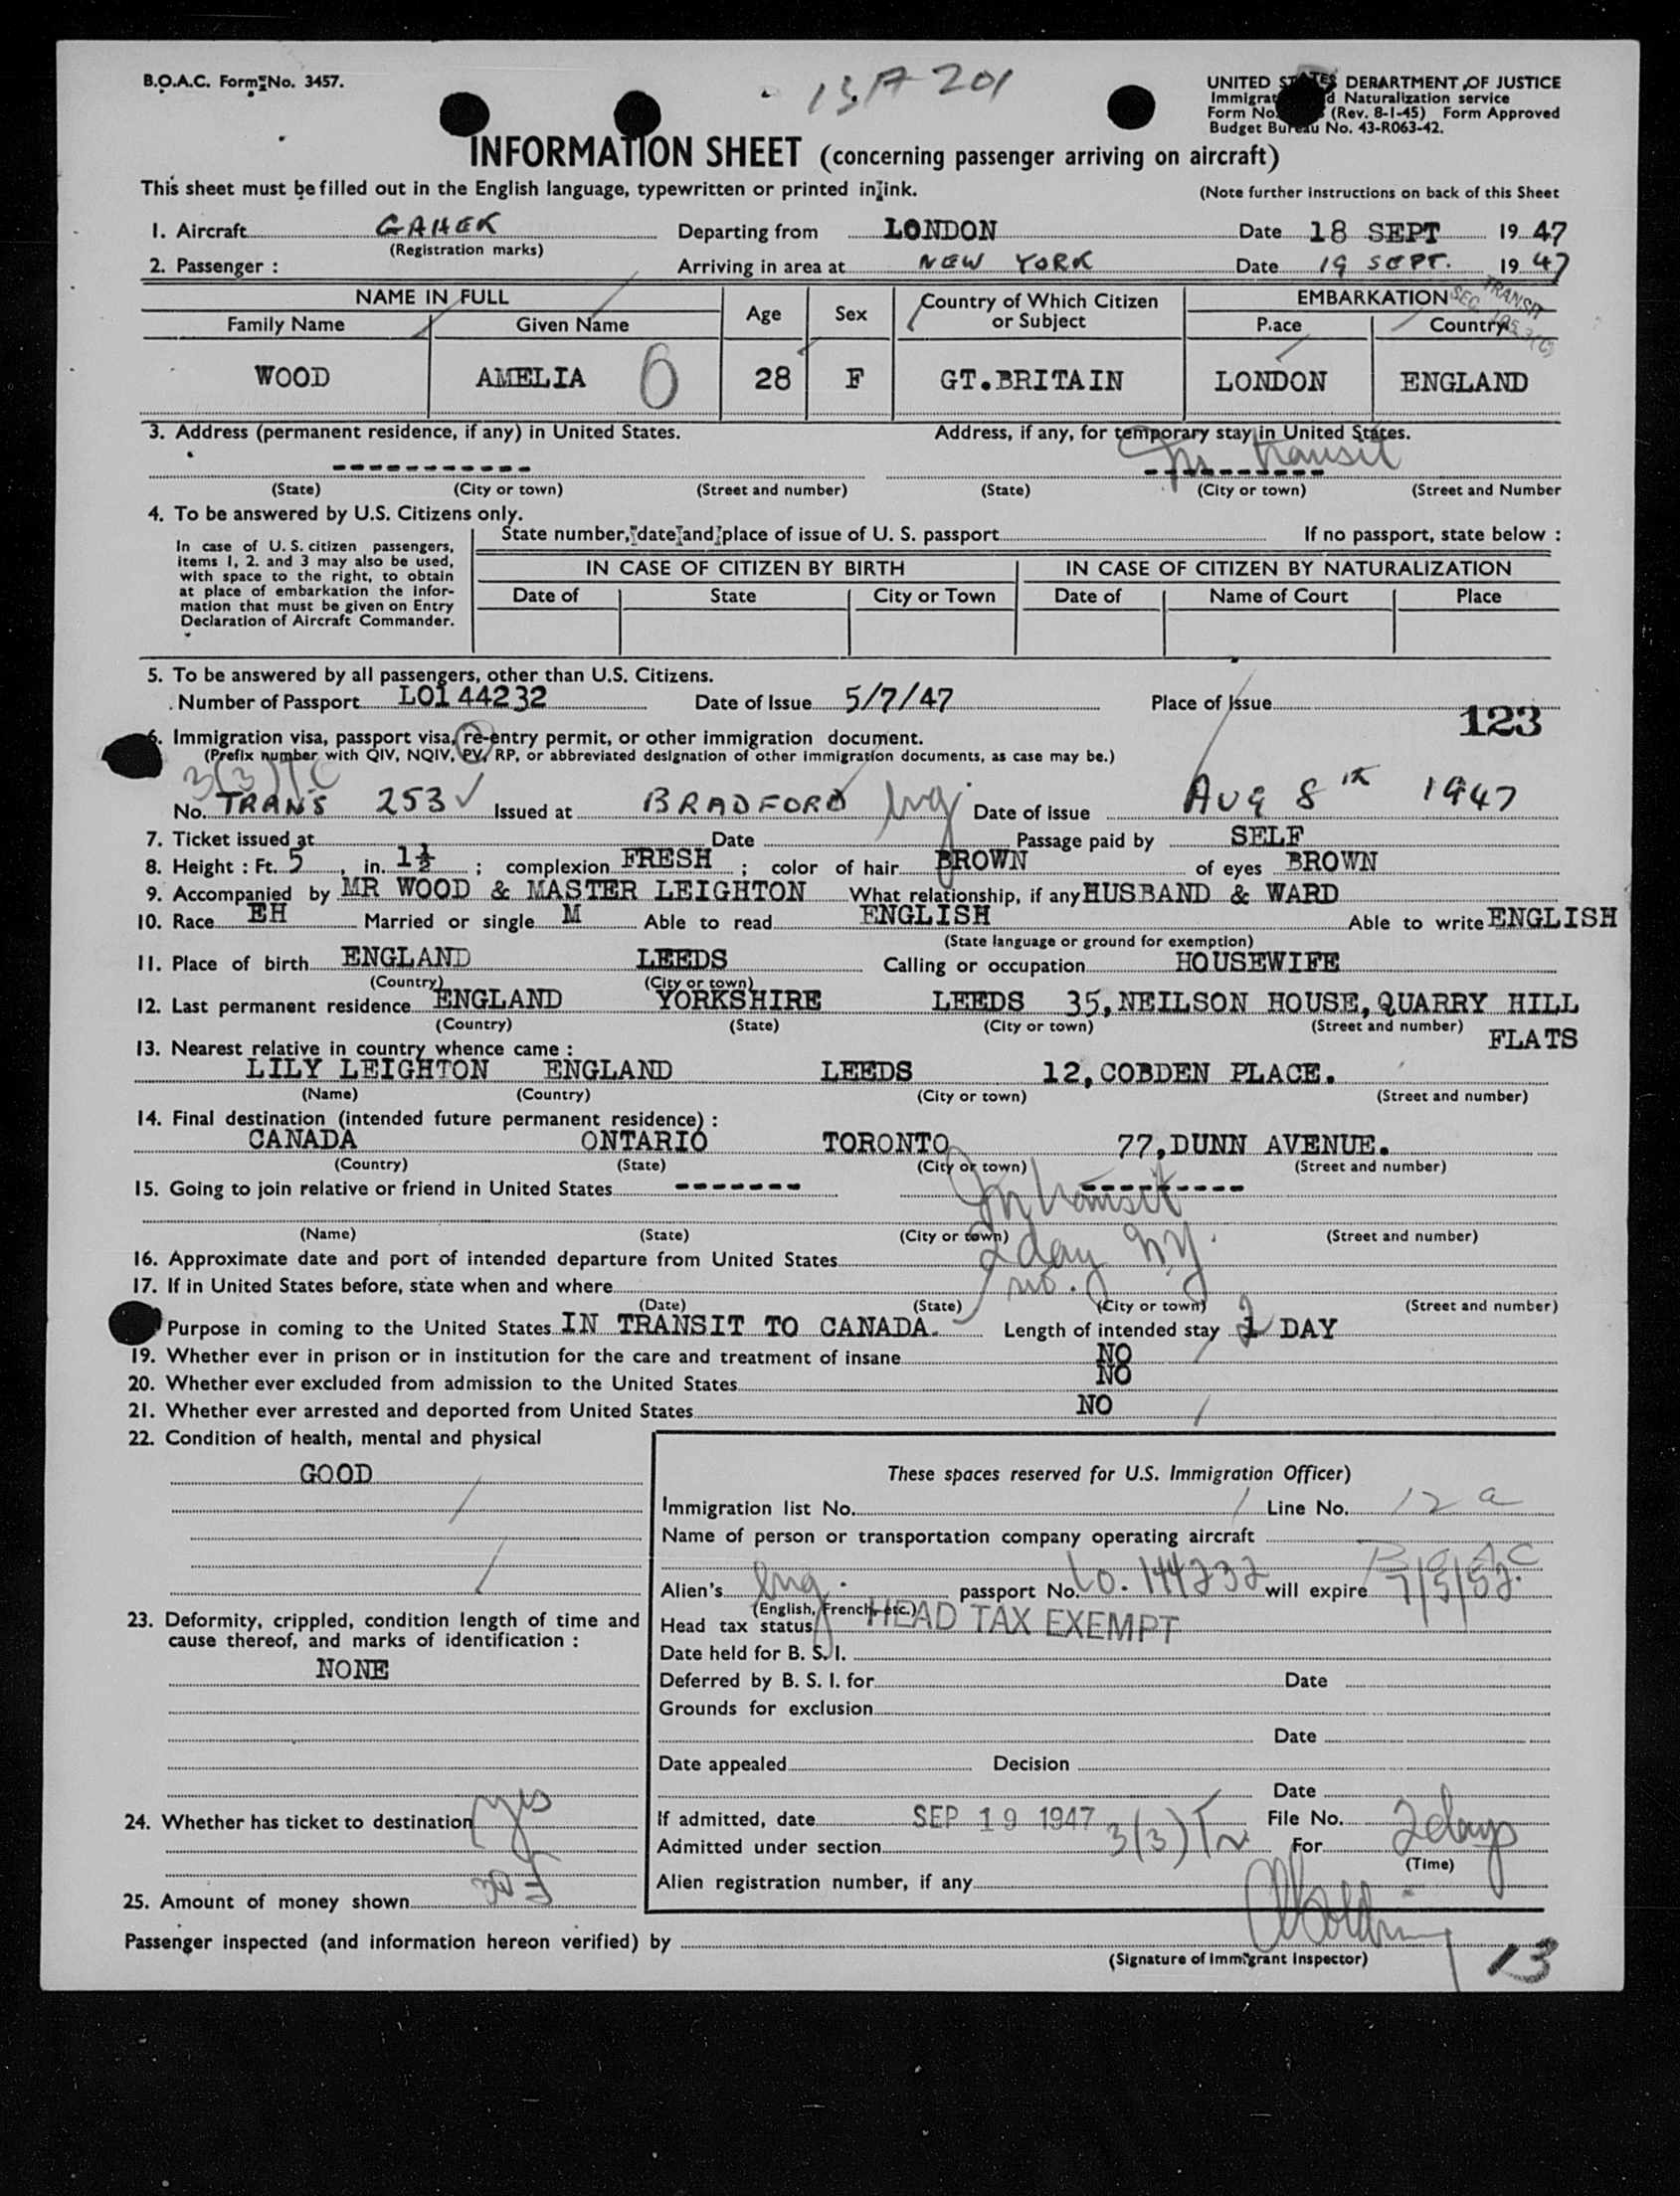 B.O.A.C. Form No. 3457.
13A 201
UNITED STATES DEPARTMENT OF JUSTICE
Immigrat d Naturalization service
Form No. (Rev. 8-1-45) Form Approved
Budget Bureau No. 43-R063-42.
INFORMATION SHEET (concerning passenger arriving on aircraft)
This sheet must be filled out in the English language, typewritten or printed in ink. (Note further instructions on back of this Sheet
1. Aircraft GAHEK Departing from LONDON Date 18 SEPT 1947
(Registration marks)
2. Passenger : Arriving in area at NEW YORK Date 19 SEPT. 1947
TRANSIT
SEC. 105.3(C)
NAME IN FULL Age Sex Country of Which Citizen or Subject EMBARKATION
Family Name Given Name Place Country
WOOD AMELIA 6 28 F GT.BRITAIN LONDON ENGLAND
3. Address (permanent residence, if any) in United States. Address, if any, for temporary stay in United States.
------------ In transit ----------
(State) (City or town) (Street and number) (State) (City or town) (Street and Number
4. To be answered by U.S. Citizens only.
State number, date and place of issue of U. S. passport If no passport, state below :
In case of U. S. citizen passengers,
items 1, 2. and 3 may also be used,
with space to the right, to obtain
at place of embarkation the infor-
mation that must be given on Entry
Declaration of Aircraft Commander.
IN CASE OF CITIZEN BY BIRTH IN CASE OF CITIZEN BY NATURALIZATION
Date of State City or Town Date of Name of Court Place
5. To be answered by all passengers, other than U.S. Citizens.
Number of Passport LO144232 Date of Issue 5/7/47 Place of Issue
123
6. Immigration visa, passport visa, re-entry permit, or other immigration document.
(Prefix number with QIV, NQIV, PV, RP, or abbreviated designation of other immigration documents, as case may be.)
3(3)TC
No. TRANS 253 Issued at BRADFORD Eng Date of issue AUG 8th 1947
7. Ticket issued at Date Passage paid by SELF
8. Height : Ft. 5 , in. 1½ ; complexion FRESH ; color of hair BROWN of eyes BROWN
9. Accompanied by MR WOOD & MASTER LEIGHTON What relationship, if any HUSBAND & WARD
10. Race EH Married or single M Able to read ENGLISH Able to write ENGLISH
(State language or ground for exemption)
11. Place of birth ENGLAND LEEDS Calling or occupation HOUSEWIFE
(Country) (City or town)
12. Last permanent residence ENGLAND YORKSHIRE LEEDS 35, NEILSON HOUSE, QUARRY HILL FLATS
(Country) (State) (City or town) (Street and number)
13. Nearest relative in country whence came :
LILY LEIGHTON ENGLAND LEEDS 12, COBDEN PLACE.
(Name) (Country) (City or town) (Street and number)
14. Final destination (intended future permanent residence) :
CANADA ONTARIO TORONTO 77, DUNN AVENUE.
(Country) (State) (City or town) (Street and number)
15. Going to join relative or friend in United States ------- ---------
In transit
(Name) (State) (City or town) (Street and number)
16. Approximate date and port of intended departure from United States 2 day N.Y.
17. If in United States before, state when and where no.
(Date) (State) (City or town) (Street and number)
Purpose in coming to the United States IN TRANSIT TO CANADA. Length of intended stay 1 2 DAY
19. Whether ever in prison or in institution for the care and treatment of insane NO
20. Whether ever excluded from admission to the United States NO
21. Whether ever arrested and deported from United States NO
22. Condition of health, mental and physical
GOOD
23. Deformity, crippled, condition length of time and
cause thereof, and marks of identification :
NONE
24. Whether has ticket to destination yes
25. Amount of money shown
These spaces reserved for U.S. Immigration Officer)
Immigration list No. Line No. 12 a
Name of person or transportation company operating aircraft
BOAC
Alien's Eng. passport No. LO. 144232 will expire 7/5/52.
(English, French, etc.)
Head tax status HEAD TAX EXEMPT
Date held for B. S. I.
Deferred by B. S. I. for Date
Grounds for exclusion
Date
Date appealed Decision
Date
If admitted, date SEP 19 1947 File No.
Admitted under section 3(3) Tr For 2 days
(Time)
Alien registration number, if any
Passenger inspected (and information hereon verified) by
(Signature of Immigrant Inspector)
13